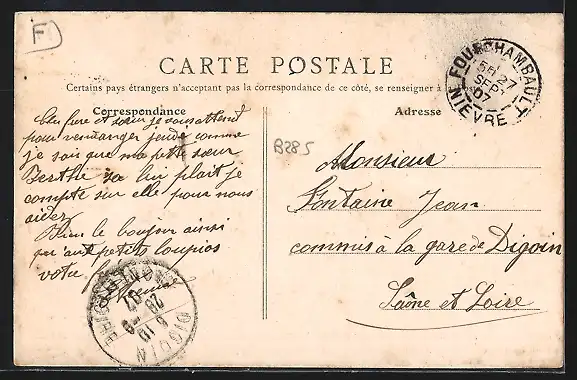 F
CARTE POSTALE
Certains pays étrangers n'acceptant pas la correspondance de ce côté, se renseigner à la poste
Correspondance
Adresse
FOURCHAMBAULT
5E 27
SEPT
07
NIEVRE
B285
frère et sœur je vous attend
pour vendanger jeudi comme
je sais que ma petite sœur
Berthe sa lui plait je
compte sur elle pour nous
aidez
bonjour ainsi
qu'aux petits loupios
votre
Monsieur
Fontaine Jean
commis à la gare de Digoin
Saône et Loire
DIGOIN